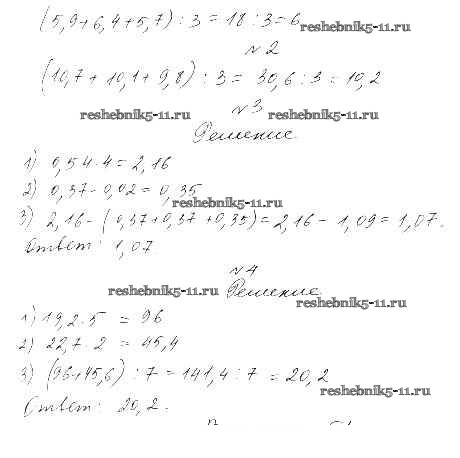 (5,9+6,4+5,7) : 3 = 18 : 3 = 6
reshebnik5-11.ru
№2
(10,7 + 10,1 + 9,8) : 3 = 30,6 : 3 = 10,2
№3
reshebnik5-11.ru reshebnik5-11.ru
Решение.
1) 0,54·4 = 2,16
2) 0,37 - 0,02 = 0,35
reshebnik5-11.ru
3) 2,16 - (0,37+0,37+0,35) = 2,16 - 1,09 = 1,07.
Ответ: 1,07.
№4
reshebnik5-11.ru Решение.
reshebnik5-11.ru
1) 19,2·5 = 96
2) 22,7·2 = 45,4
3) (96+45,6) : 7 = 141,4 : 7 = 20,2
reshebnik5-11.ru
Ответ: 20,2.